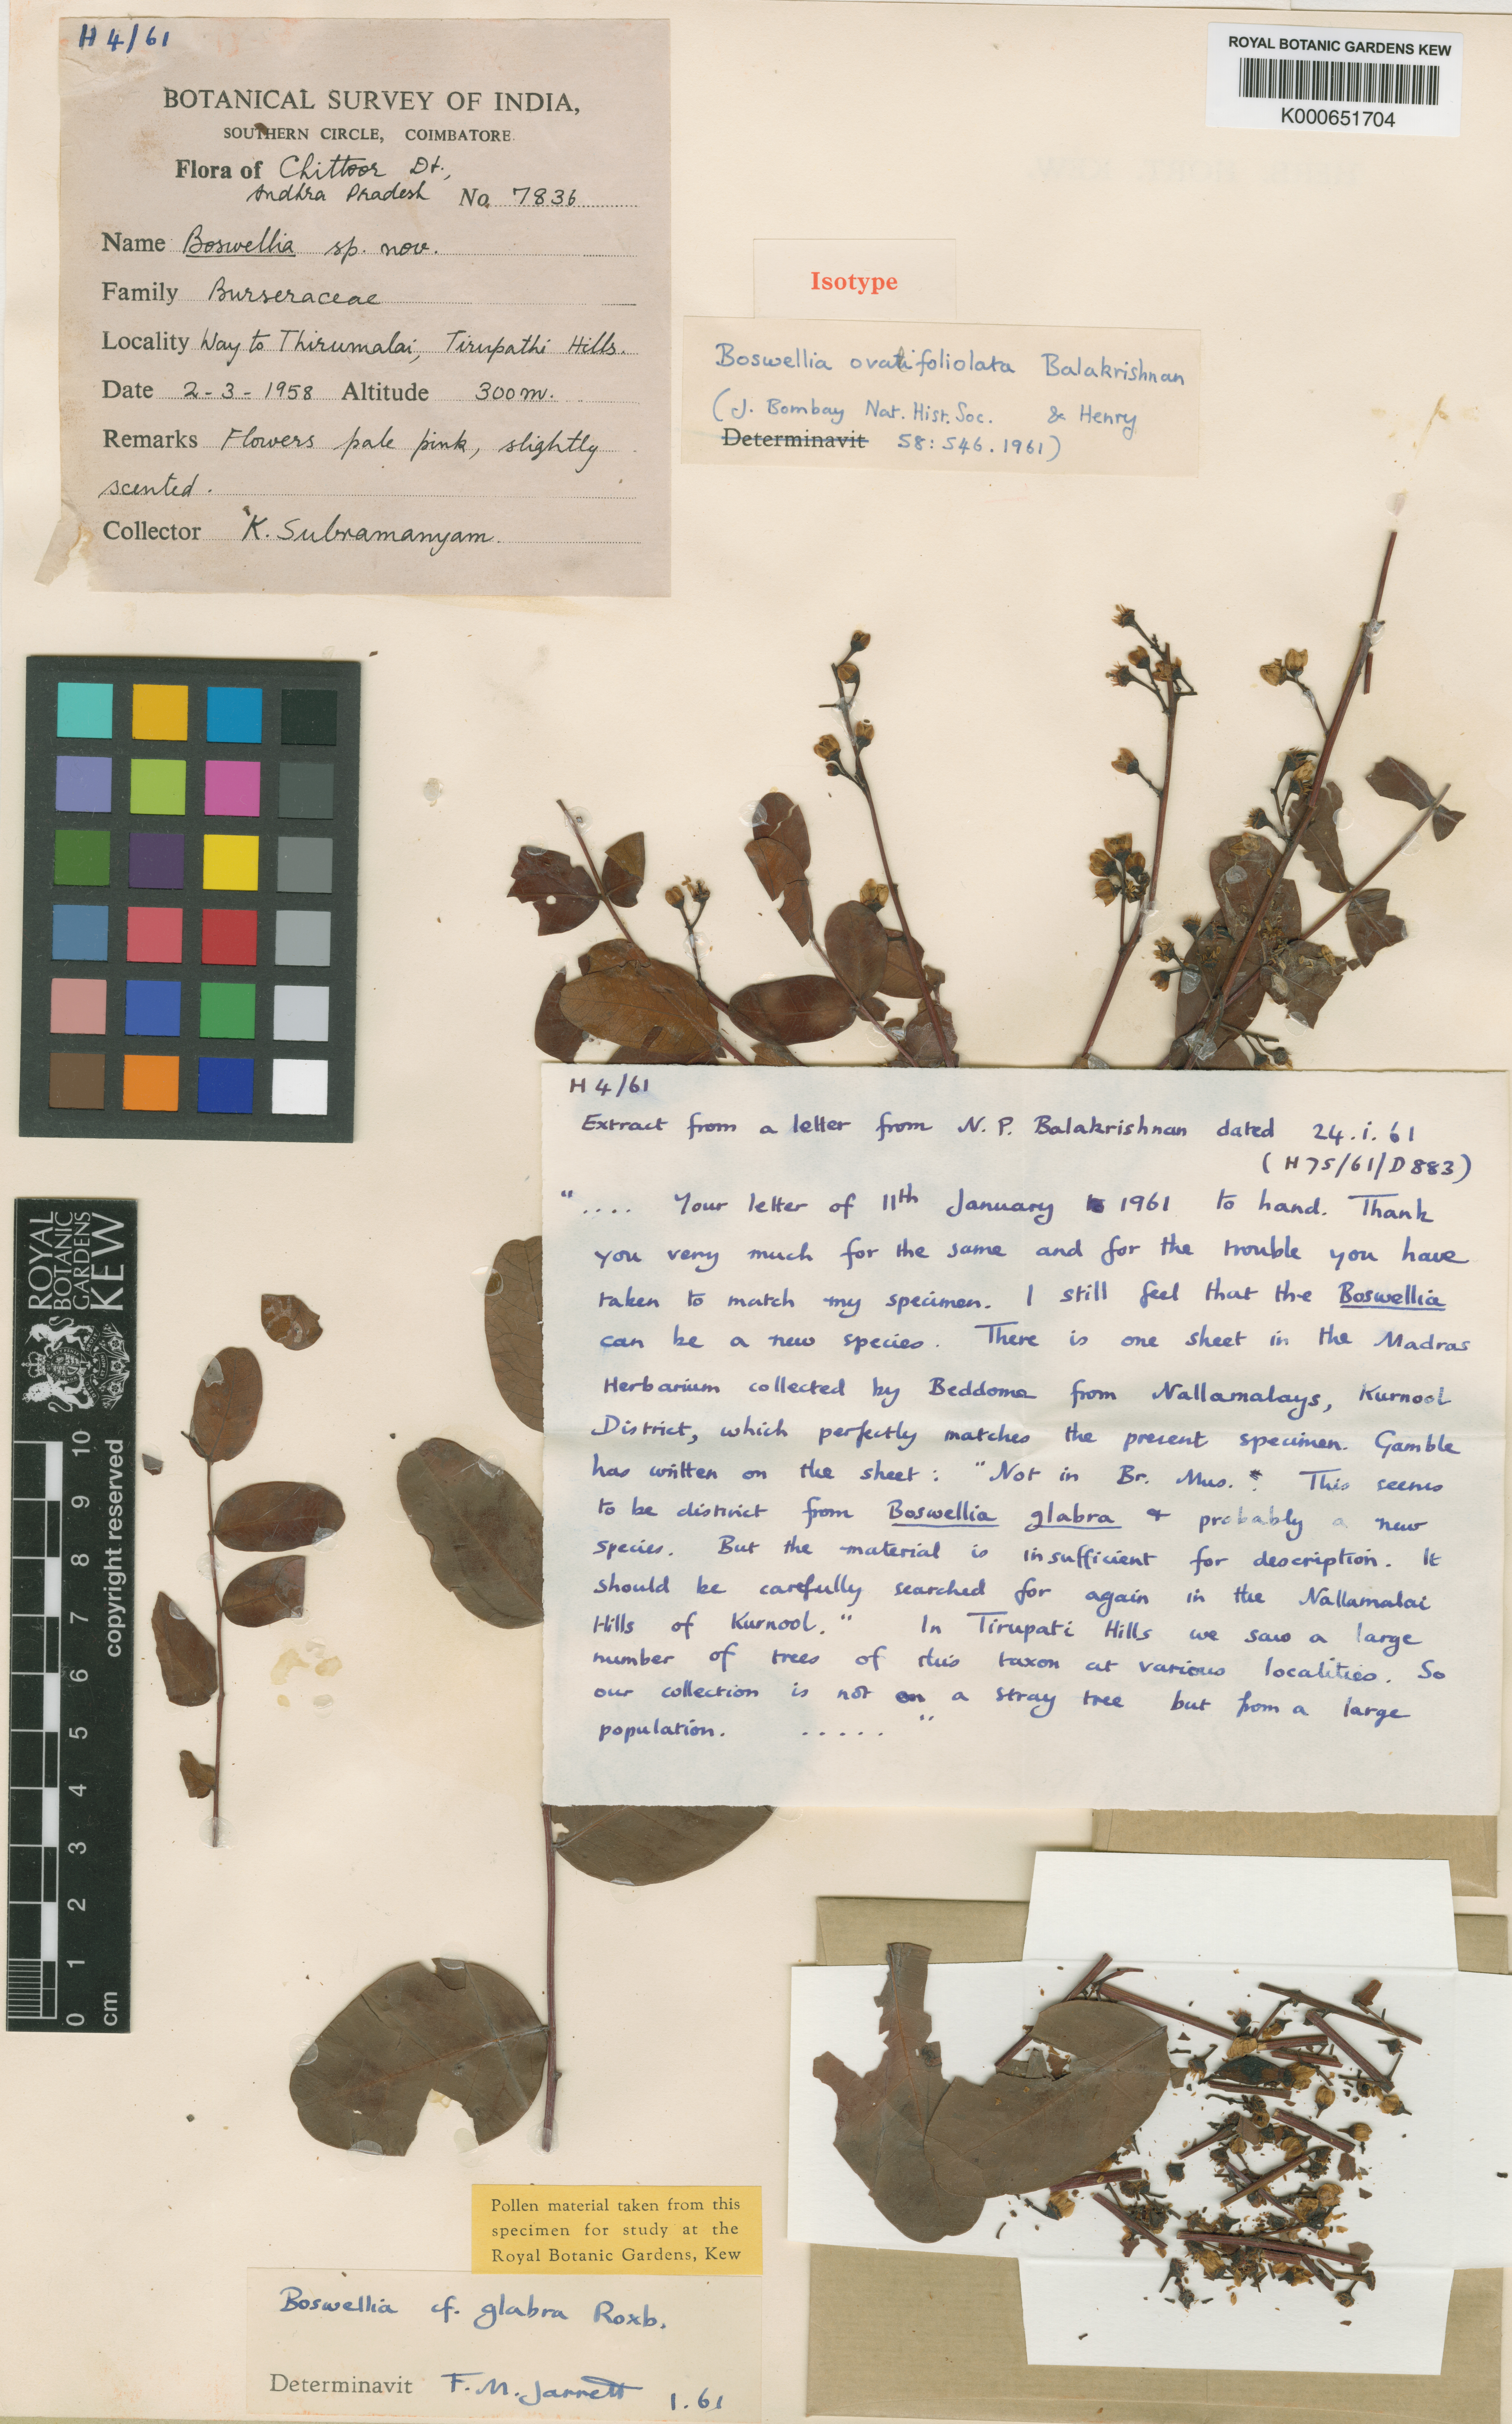 H 4/61
BOTANICAL SURVEY OF INDIA,
SOUTHERN CIRCLE, COIMBATORE.
Flora of Chittoor Dt.,
Andhra Pradesh No. 7836
Name Boswellia sp. nov.
Family Burseraceae
Locality Way to Thirumalai, Tirupathi Hills.
Date 2-3-1958 Altitude 300m.
Remarks Flowers pale pink, slightly
scented.
Collector K. Subramanyam.
ROYAL BOTANIC GARDENS KEW
K000651704
Isotype
Boswellia ovalifoliolata Balakrishnan
(J. Bombay Nat. Hist. Soc. & Henry
Determinavit 58: 546. 1961)
H 4/61
Extract from a letter from N. P. Balakrishnan dated 24.i.61
(H75/61/D883)
".... Your letter of 11th January 1961 to hand. Thank
you very much for the same and for the trouble you have
taken to match my specimen. I still feel that the Boswellia
can be a new species. There is one sheet in the Madras
Herbarium collected by Beddome from Nallamalays, Kurnool
District, which perfectly matches the present specimen. Gamble
has written on the sheet: "Not in Br. Mus. This seems
to be distinct from Boswellia glabra & probably a new
species. But the material is insufficient for description. It
should be carefully searched for again in the Nallamalai
Hills of Kurnool." In Tirupati Hills we saw a large
number of trees of this taxon at various localities. So
our collection is not on a stray tree but from a large
population. ....."
ROYAL
BOTANIC
GARDENS
KEW
copyright reserved
10
9
8
7
6
5
4
3
2
1
0
cm
Pollen material taken from this
specimen for study at the
Royal Botanic Gardens, Kew
Boswellia cf. glabra Roxb.
Determinavit F. M. Jarrett 1.61